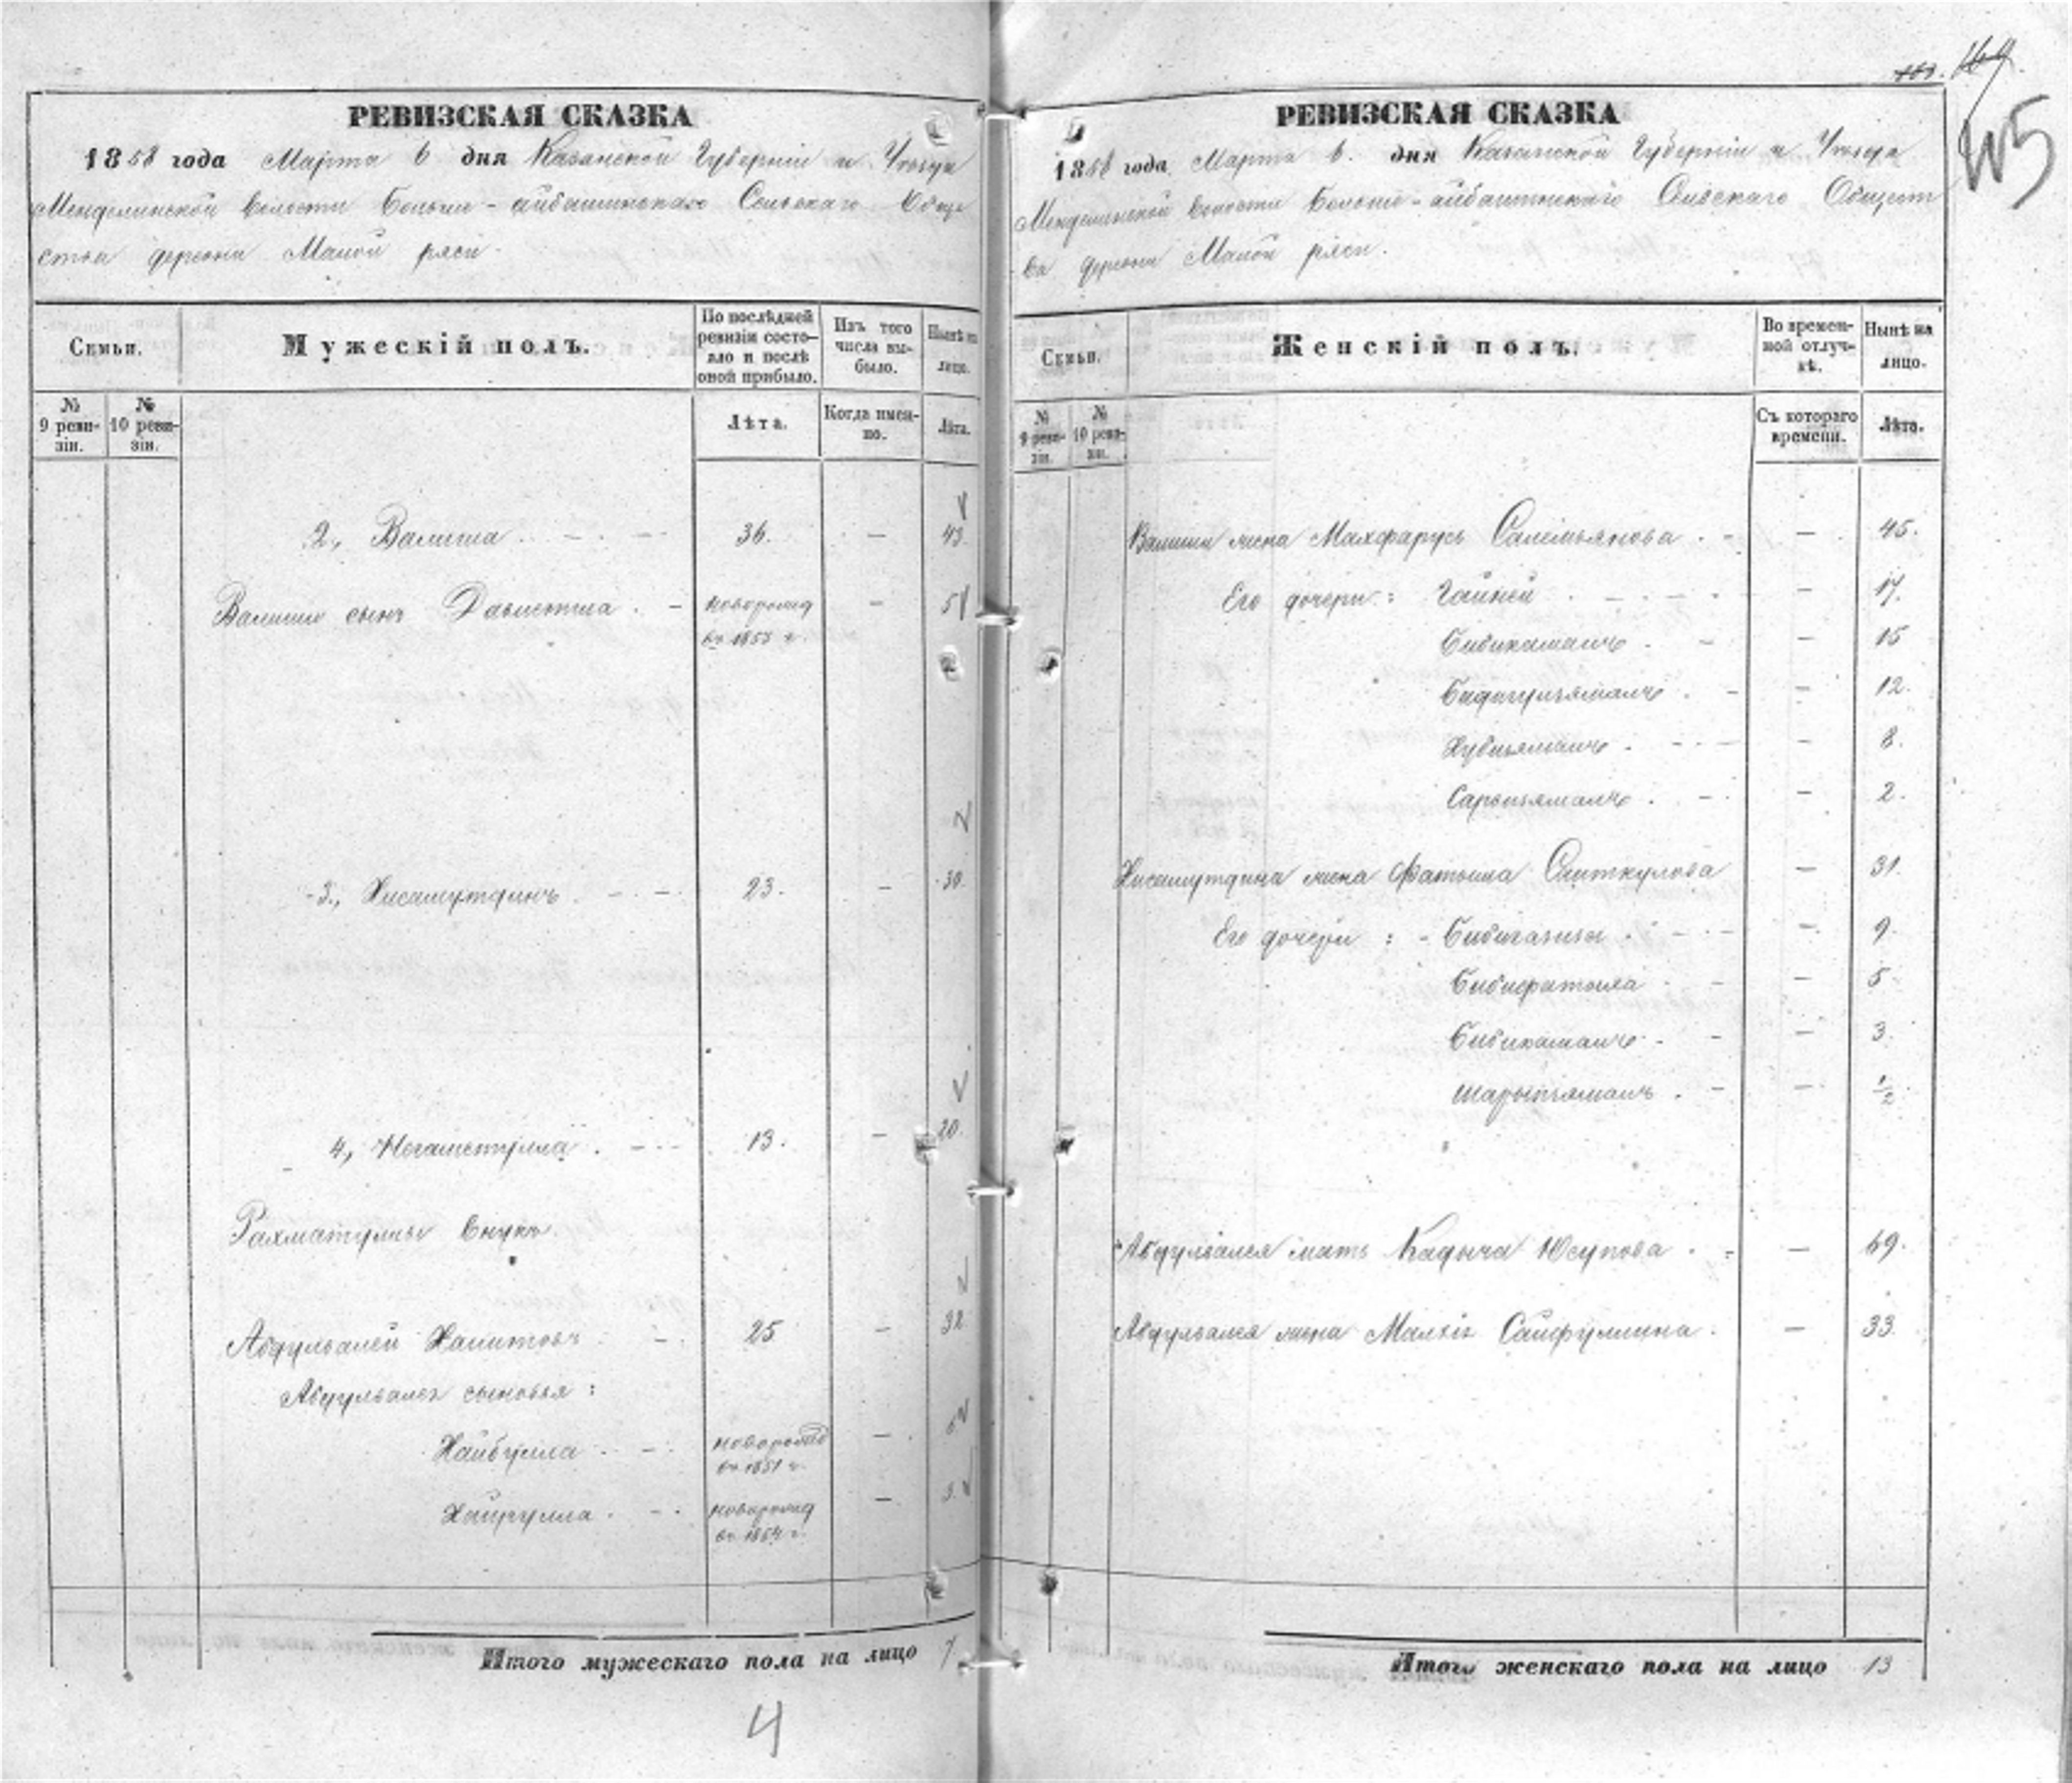 РЕВИЗСКАЯ СКАЗКА
1858 года Марта 6 дня Казанской Губернiи и Уѣзда
Менделинской волости Больше-айбашинскаго Сельскаго Обще
ства деревни Малой ряси.
Семьи.
Мужескiй полъ.
По послѣдней
ревизiи состо-
яло и послѣ
оной прибыло.
Изъ того
числа вы-
было.
Нынѣ на
лицо.
№
9 реви-
зiи.
№
10 реви-
зiи.
Лѣта.
Когда имен-
но.
Лѣта.
2, Валиша 36. — 43.
Валиши сынъ Давлетша. — новорожд — 5
въ 1853 г.
3, Хисамутдинъ. 23. — 30.
4, Негаметулла. 13. — 20.
Рахматуллы внукъ
Абдулвалей Хамитовъ 25 — 32
Абдулвалея сыновья:
Хайбулла новорожд —
въ 1851 г.
Хайрулла. новорожд — 3.
въ 1854 г.
Итого мужескаго пола на лицо 7.
4
РЕВИЗСКАЯ СКАЗКА
1858 года Марта 6. дня Казанской Губернiи и Уѣзда
Менделинской волости Больше-айбашинскаго Сельскаго Общест
ва деревни Малой ряси.
115
Семьи.
Женскiй полъ.
Во времен-
ной отлуч-
кѣ.
Нынѣ на
лицо.
№
9 реви-
зiи.
№
10 реви-
зiи.
Съ котораго
времени.
Лѣта.
Валиши жена Махфарузь Салимьянова — 45.
Его дочери: Гайней — 17.
Бибикамалъ — 15
Бадигульямалъ — 12.
Хубьямалъ. — 8.
Сарьямалъ. — 2.
Хисамутдина жена Фатыма Саиткулова — 31.
Его дочери: — 9.
Бибифатыма — 5
Бибикамалъ. — 3.
— 1/2
Абдулвалея мать Кадыча Юсупова. — 69.
Абдулвалея жена Сайфуллина. — 33.
Итого женскаго пола на лицо 13